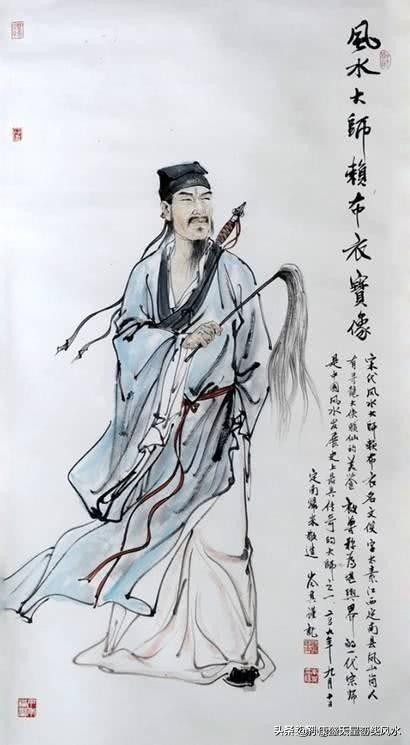 風水大師賴布衣寶像
宋代風水大師賴布衣名文俊字太素江西定南县鳳山岗人
有寻龍大侠賴仙的美誉 被尊称為堪輿界的一代宗師
是中國風水发展史上最具传奇的大師之一 二〇〇九年九月十日
定南 敬造
头条 天星 风水